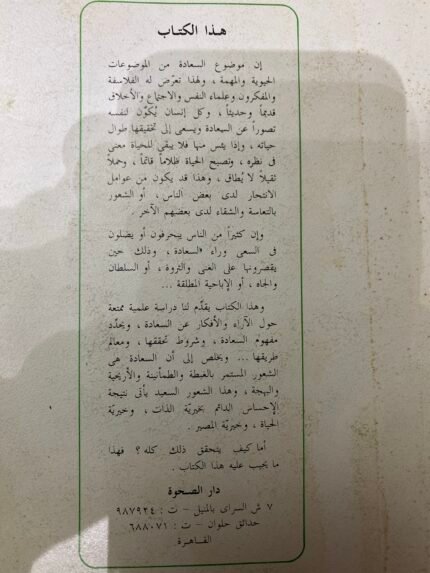 هـذا الكتـاب
إن موضوع السعادة من الموضوعات
الحيوية والمهمة ، ولهذا تعرّض له الفلاسفة
والمفكرون وعلماء النفس والاجتماع والأخلاق
قديماً وحديثاً ، وكل إنسان يُكوّن لنفسه
تصوراً عن السعادة ويسعى إلى تحقيقها طوال
حياته ، وإذا يئس منها فلا يبقى للحياة معنى
فى نظره ، وتصبح الحياة ظلاماً قاتماً ، وحملاً
ثقيلاً لا يُطاق ، وهذا قد يكون من عوامل
الانتحار لدى بعض الناس ، أو الشعور
بالتعاسة والشقاء لدى بعضهم الآخر .
وإن كثيراً من الناس ينحرفون أو يضلون
فى السعى وراء «السعادة ، وذلك حين
يقصرونها على الغنى والثروة ، أو السلطان
والجاه ، أو الإباحية المطلقة ...
وهذا الكتاب يقدّم لنا دراسة علمية ممتعة
حول الآراء والأفكار عن السعادة ، ويحدّد
مفهوم السعادة ، وشروط تحققها ، ومعالم
طريقها ... ويخلص إلى أن السعادة هى
الشعور المستمر بالغبطة والطمأنينة والأريحية
والبهجة ، وهذا الشعور السعيد يأتى نتيجة
للإحساس الدائم بخيريّة الذات ، وخيريّة
الحياة ، وخيريّة المصير .
أما كيف يتحقق ذلك كله ؟ فهذا
ما يجيب عليه هذا الكتاب .
دار الصحوة
٧ ش السراى بالمنيل – ت : ٩٨٧٩٢٤
حدائق حلوان – ت : ٦٨٨٠٧١
القـاهـرة